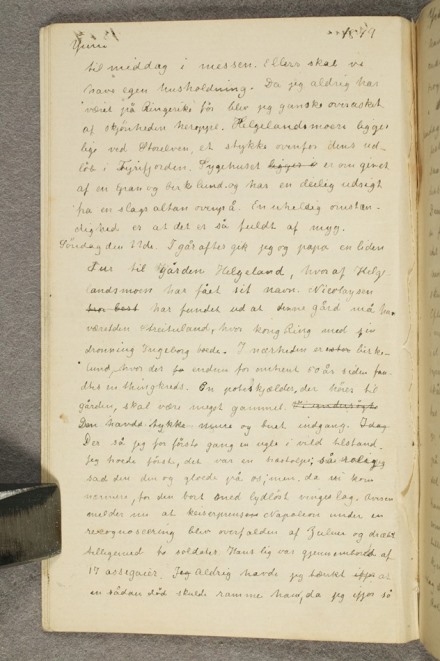 Juni 1879
til middag i messen. Ellers skal vi
have egen husholdning. Da jeg aldrig har
været på Ringerike før blev jeg ganske overrasket
af skjønheden heroppe. Helgelandsmoen ligger
lige ved Storelven, et stykke ovenfor dens ud-
løb i Tyrifjorden. Sygehuset ligger i er omgivet
af en Gran og birkelund og har en deilig udsigt
fra en slags altan ovenpå. En uheldig omstæn-
dighed er at det er så fuldt af myg.
Søndag den 22de. Igåraftes gik jeg og papa en liden
tur til Gården Helgeland, hvoraf Helge-
landsmoen har fået sit navn. Nicolaysen
har fundet ud at denne gård må ha
været den Streitaland, hvor kong Ring med sin
dronning Ingeborg boede. I nærheden er birke-
lund, hvor der endnu for omtrent 50 år siden fan-
dtes en thingkreds. En potetkjælder, der hører til
gården, skal være meget gammel.
Den havde tykke mure og buet indgang. Idag
Der så jeg for første gang en ugle i vild tilstand.
Jeg troede først, det var en træstolpe, så rolig
sad den der og gloede på os, men da vi kom
nærmere, for den bort med lydløst vingeslag. Avisen
melder nu at keiserprinsen Napoleon under en
rekognoscering blev overfalden af Zuluer og dræbt
tilligemed to soldater. Hans lig var gjennemboret af
17 assegaier. Aldrig havde jeg tænkt ifjor at
en sådan død skulde ramme ham, da jeg ifjor så